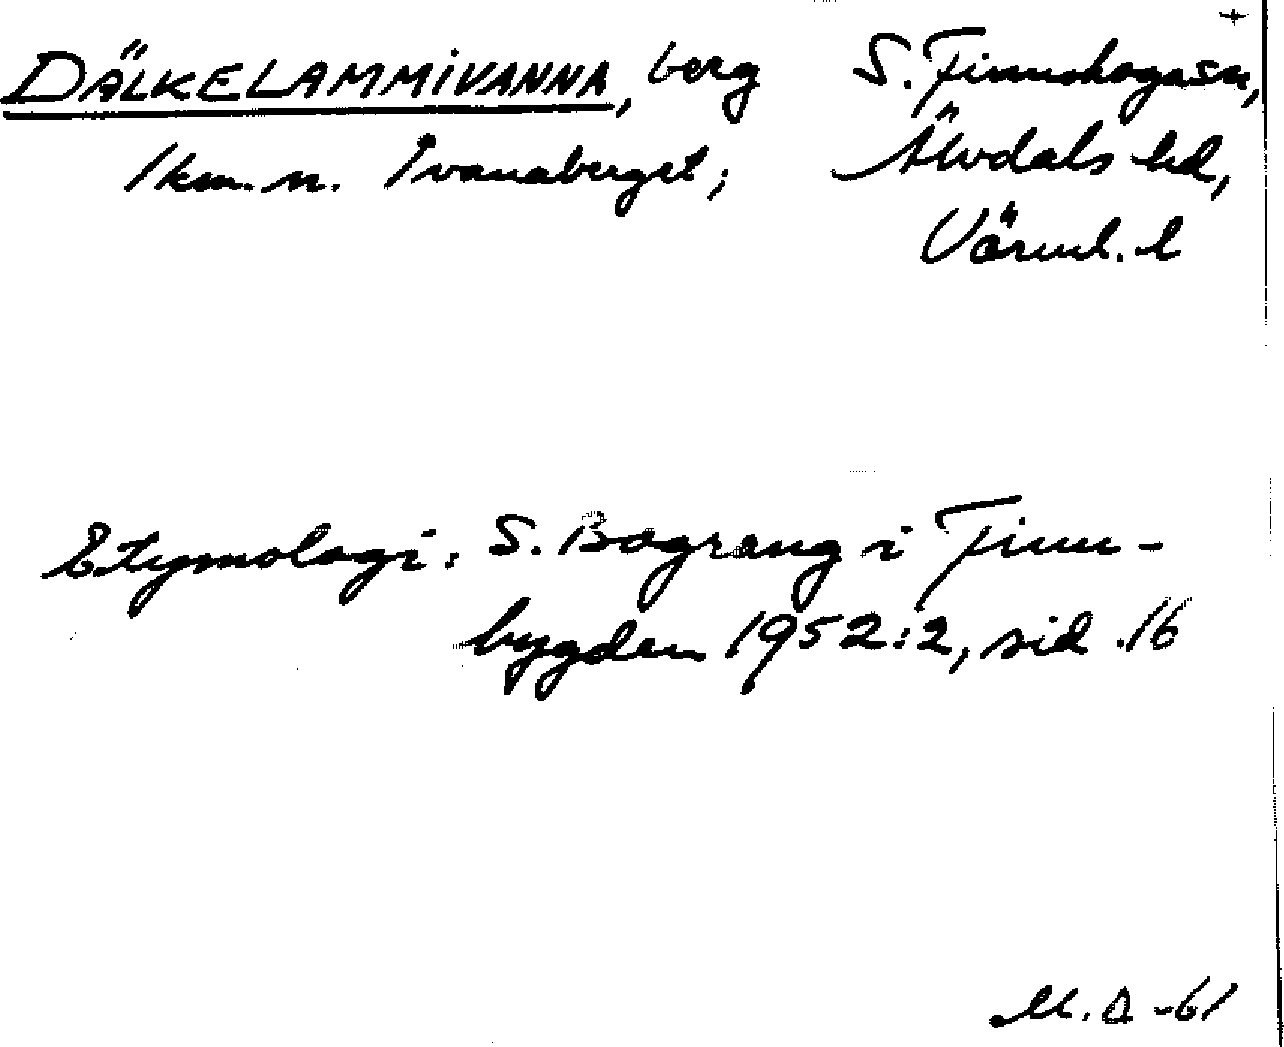 DÄLKELAMMIVANNA, berg S. Finnskoga sn,
1 km. n. Ivanaberget; Älvdals hd,
Värml. l
Etymologi: S. Bograng i Finn-
bygden 1952:2, sid. 16
M. A -61